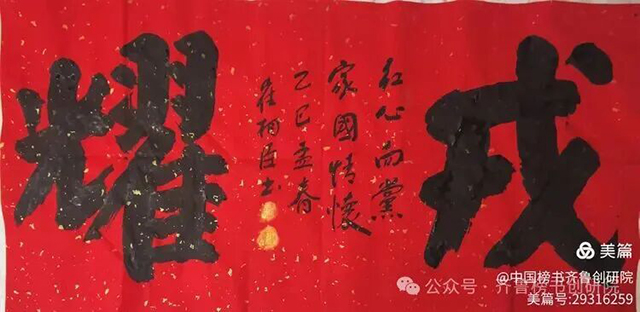 戎
红心向黨
家國情懷
乙巳孟春
书
耀
美篇
@中国榜书齐鲁创研院
公众号·齐鲁榜书创研院
美篇号:29316259